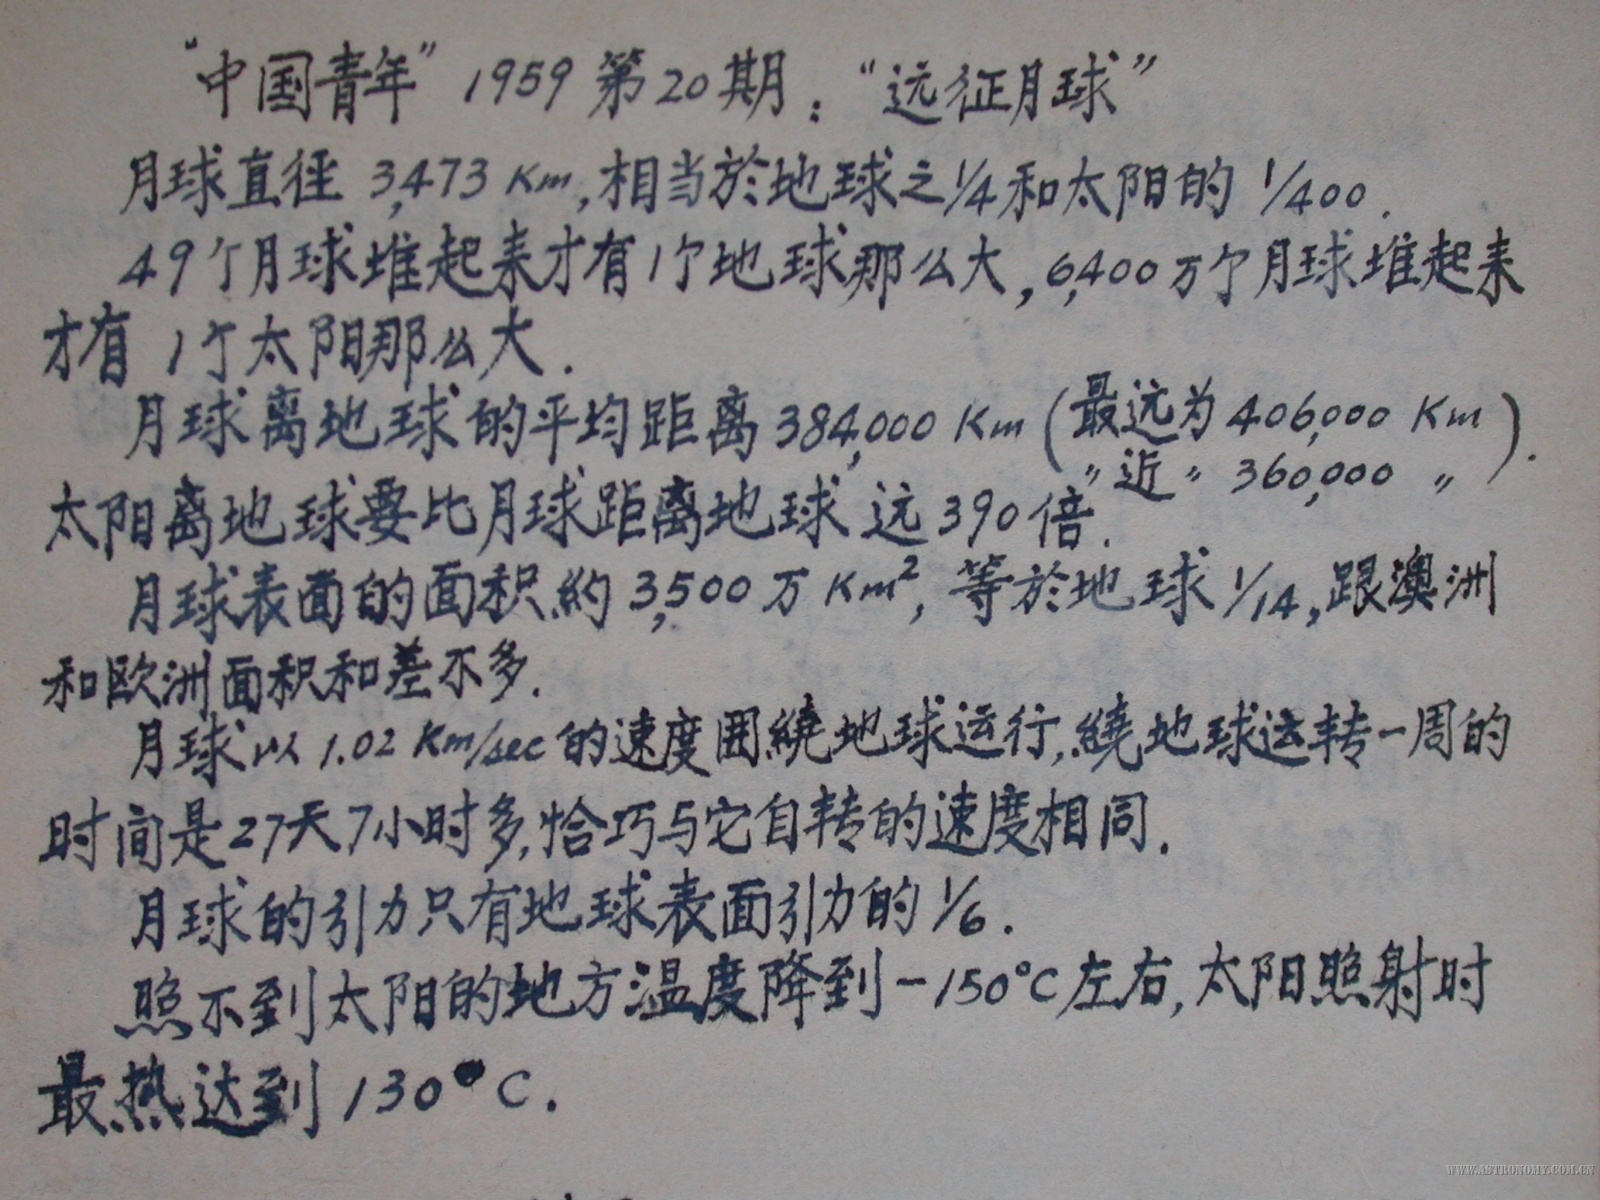 “中国青年” 1959 第20期：“远征月球”
月球直径 3,473 Km, 相当於地球之1/4和太阳的 1/400.
49个月球堆起来才有1个地球那么大, 6,400万个月球堆起来
才有 1个太阳那么大.
月球离地球的平均距离 384,000 Km (最远为 406,000 Km
〃近〃 360,000 〃).
太阳离地球要比月球距离地球远390倍.
月球表面的面积約 3,500万 Km², 等於地球 1/14, 跟澳洲
和欧洲面积和差不多.
月球以 1.02 Km/sec 的速度囲繞地球运行, 繞地球运转一周的
时间是27天7小时多, 恰巧与它自转的速度相同.
月球的引力只有地球表面引力的 1/6.
照不到太阳的地方温度降到 -150°C左右, 太阳照射时
最热达到 130°C.
WWW.ASTRONOMY.COM.CN